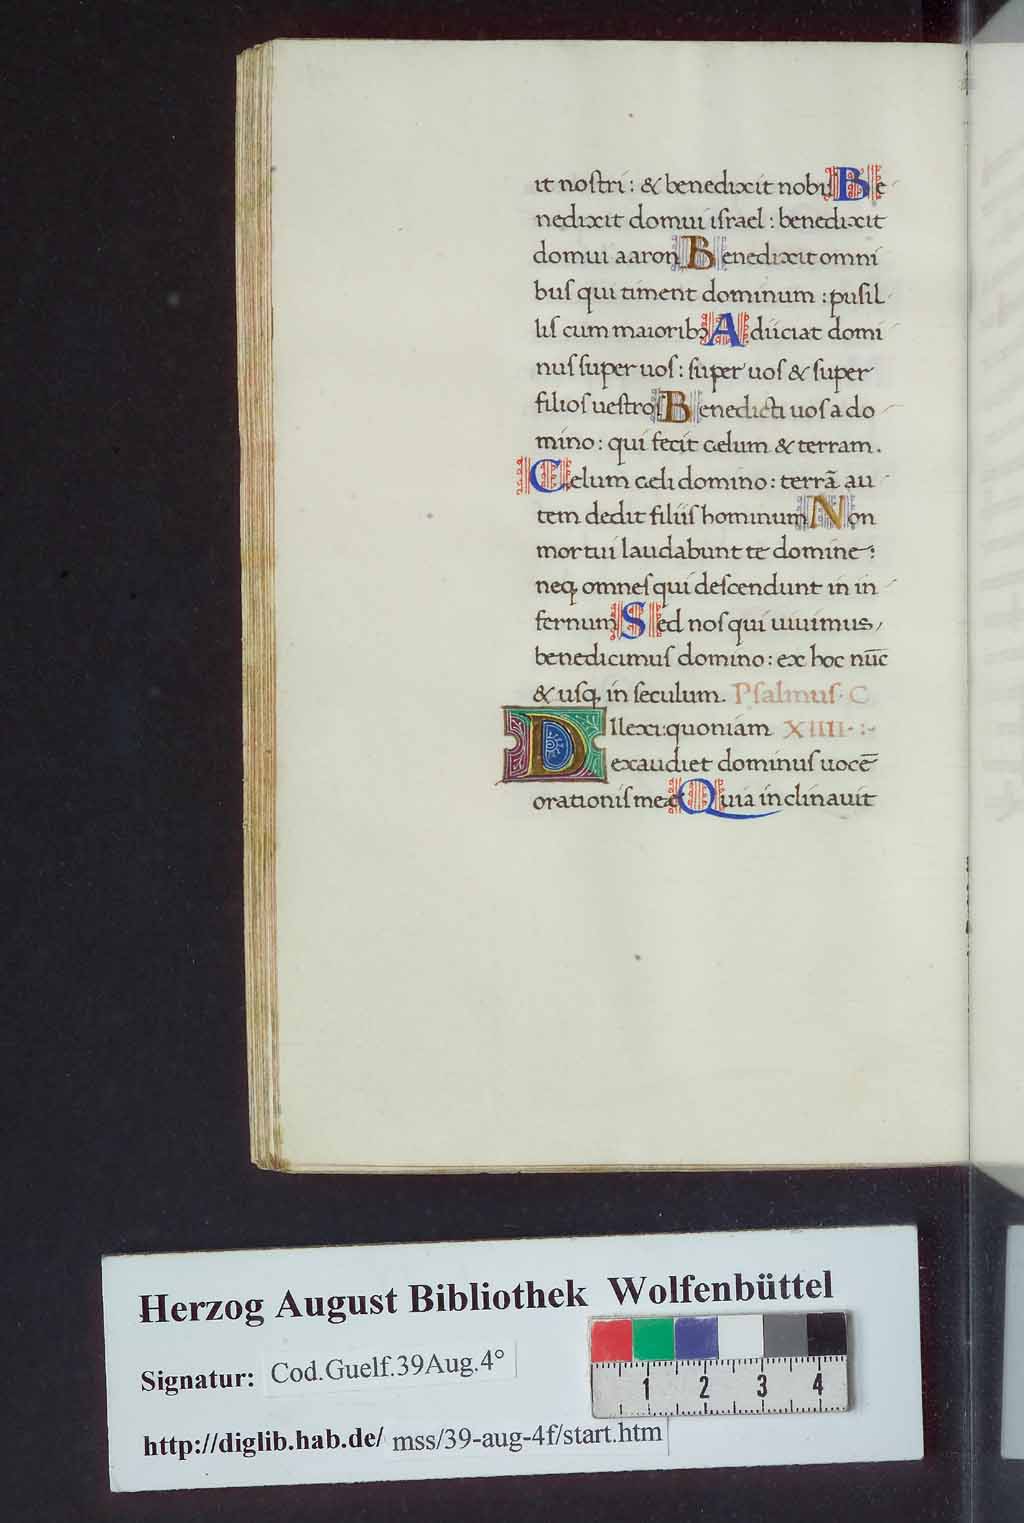 it nostri : & benedixit nobis Be
nedixit domui israel : benedixit
domui aaron Benedixit omni
bus qui timent dominum : pusil
lis cum maioribꝫ Adiiciat domi
nus super uos : super uos & super
filios uestros Benedicti uos a do
mino : qui fecit celum & terram.
Celum celi domino : terrã au
tem dedit filiis hominum Non
mortui laudabunt te domine :
neq; omnes qui descendunt in in
fernum Sed nos qui uiuimus,
benedicimus domino : ex hoc nūc
& usq; in seculum. Psalmus · C
DIlexi: quoniam XIIII · : ~
exaudiet dominus uocē
orationis meæ Quia inclinauit
Herzog August Bibliothek Wolfenbüttel
Signatur: Cod.Guelf.39Aug.4°
1 2 3 4
http://diglib.hab.de/ mss/39-aug-4f/start.htm